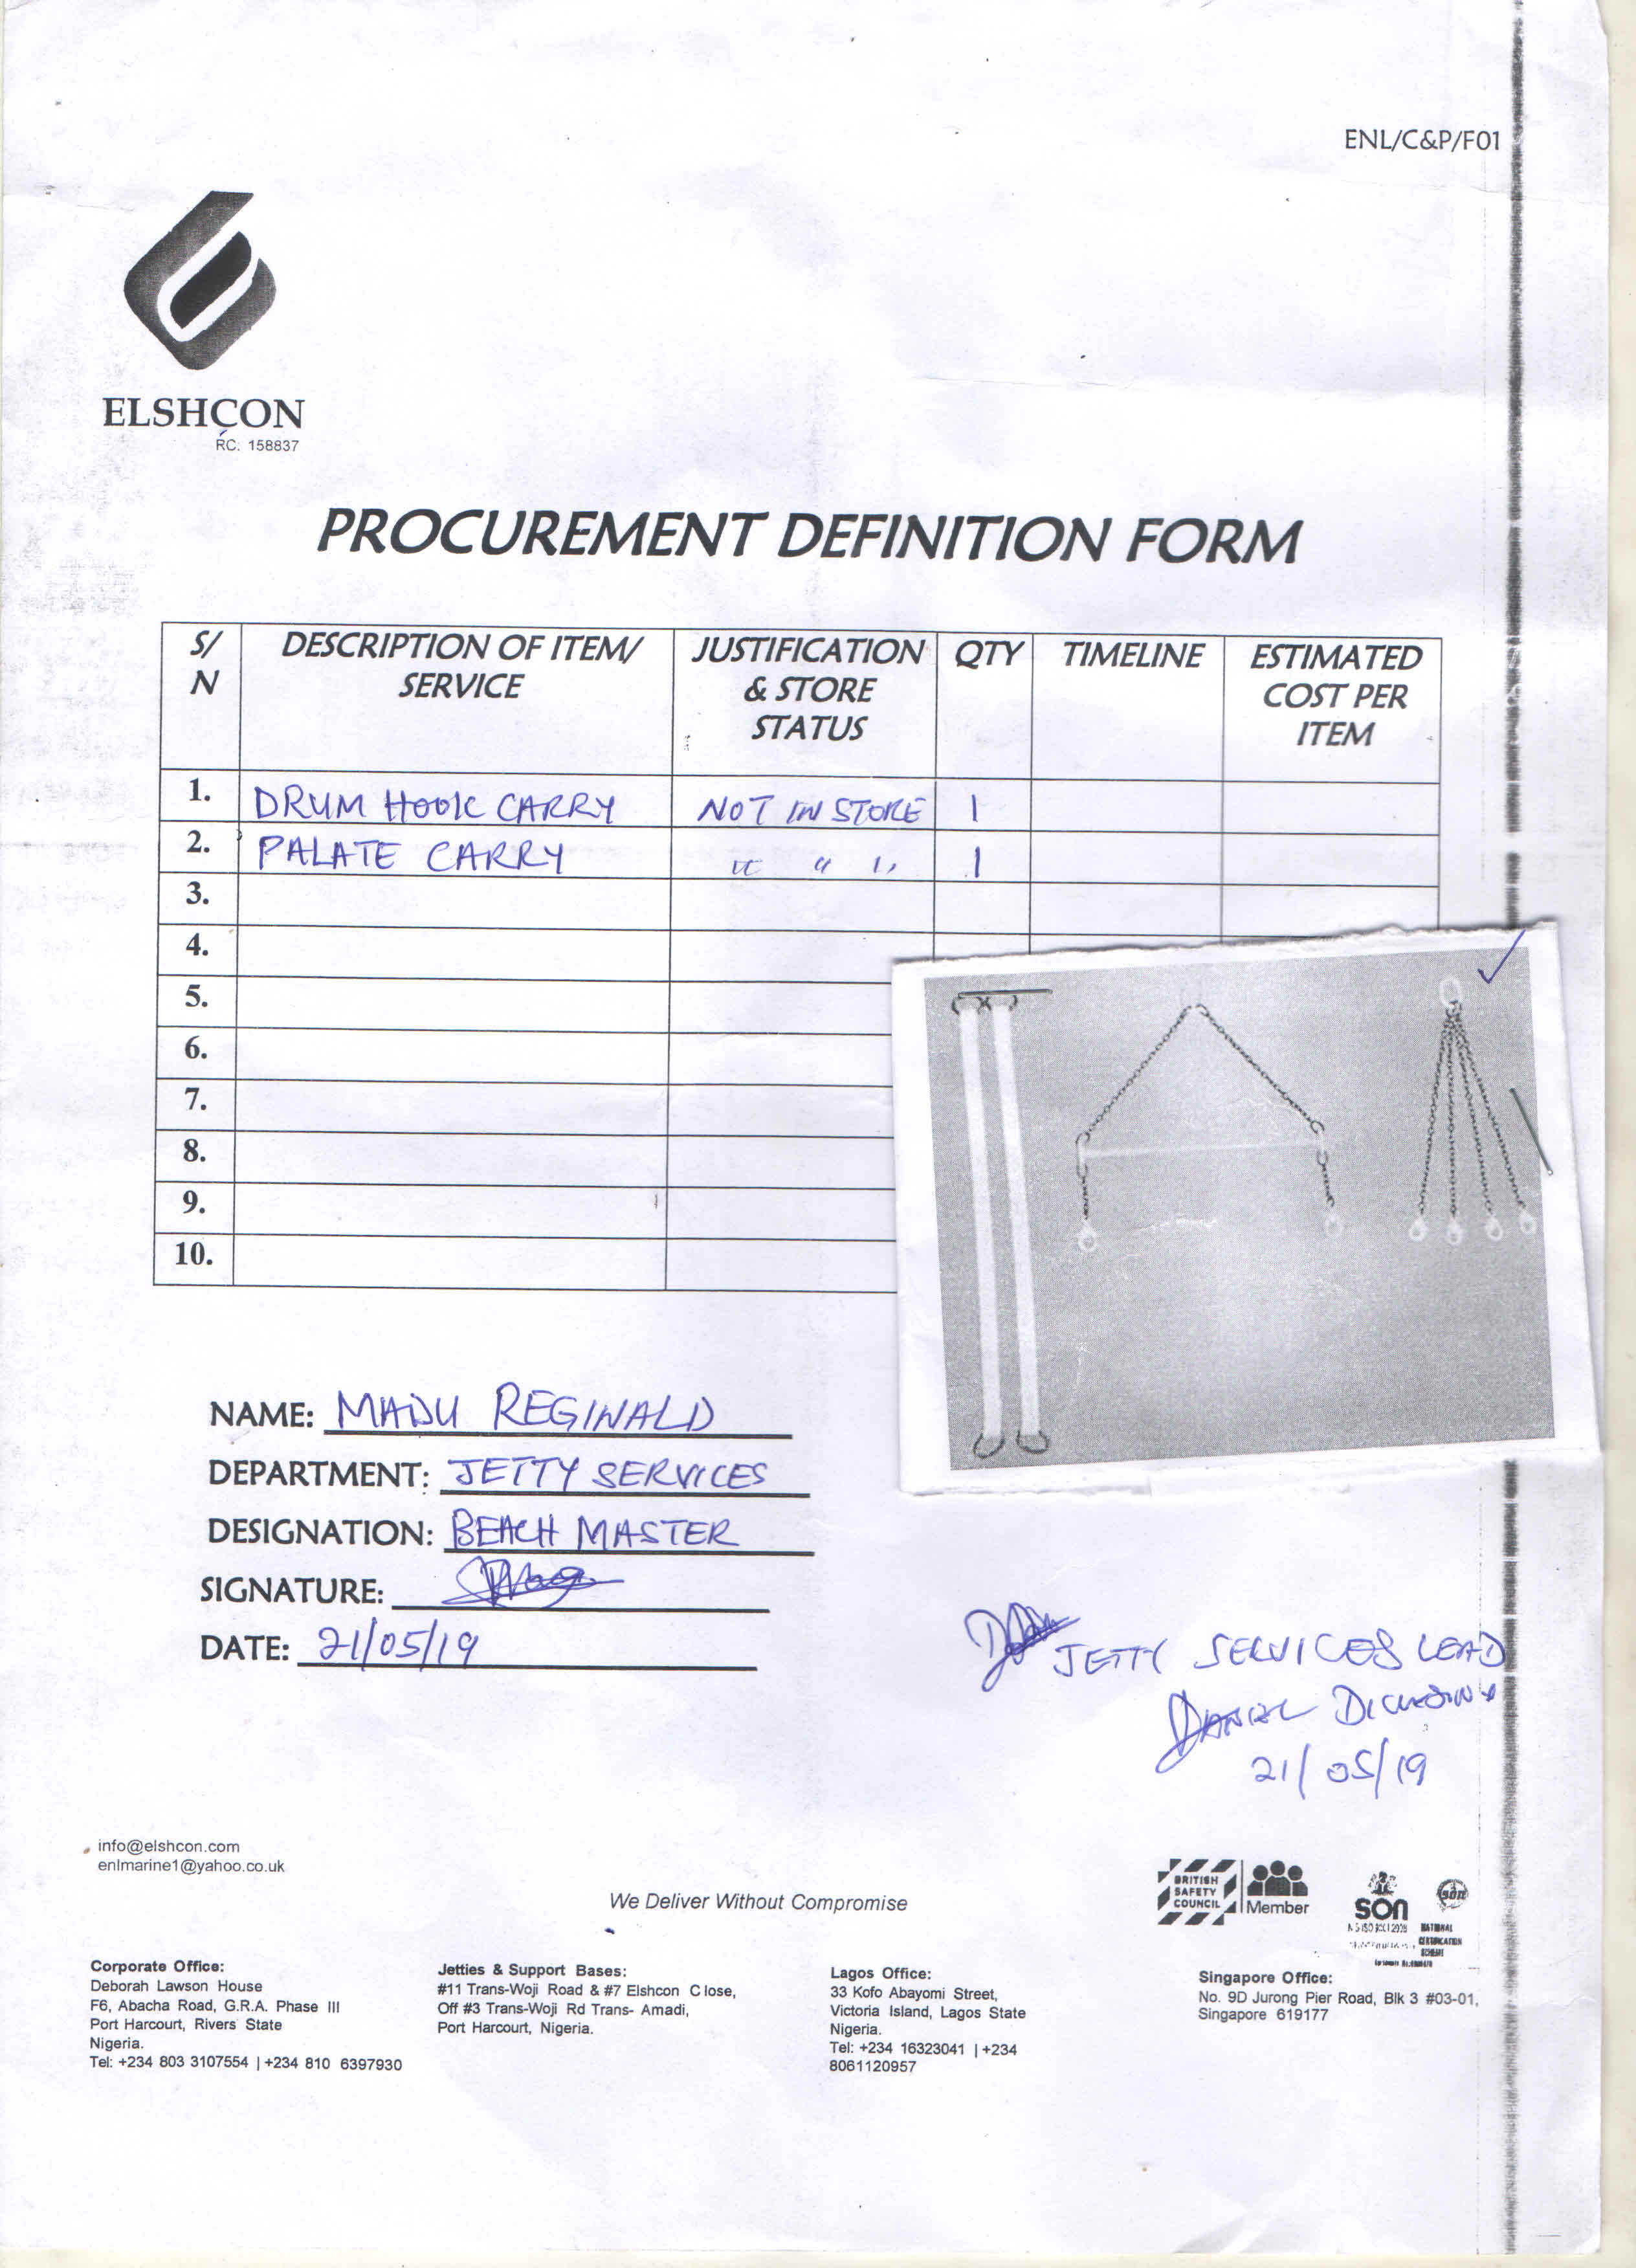 ENL/C&P/F01
ELSHCON
RC: 158837
PROCUREMENT DEFINITION FORM
S/N DESCRIPTION OF ITEM/SERVICE JUSTIFICATION & STORE STATUS QTY TIMELINE ESTIMATED COST PER ITEM
1. DRUM HOOK CARRY NOT IN STORE 1
2. PALATE CARRY " " " 1
3.
4.
5.
6.
7.
8.
9.
10.
NAME: MADU REGINALD
DEPARTMENT: JETTY SERVICES
DESIGNATION: BEACH MASTER
SIGNATURE:
DATE: 21/05/19
JETTY SERVICES LEAD
DANIEL
21/05/19
info@elshcon.com
enlmarine1@yahoo.co.uk
We Deliver Without Compromise
BRITISH
SAFETY
COUNCIL
Member
SON
NATIONAL
CERTIFICATION
SCHEME
Corporate Office:
Deborah Lawson House
F6, Abacha Road, G.R.A. Phase III
Port Harcourt, Rivers State
Nigeria.
Tel: +234 803 3107554 | +234 810 6397930
Jetties & Support Bases:
#11 Trans-Woji Road & #7 Elshcon Close,
Off #3 Trans-Woji Rd Trans- Amadi,
Port Harcourt, Nigeria.
Lagos Office:
33 Kofo Abayomi Street,
Victoria Island, Lagos State
Nigeria.
Tel: +234 16323041 | +234
8061120957
Singapore Office:
No. 9D Jurong Pier Road, Blk 3 #03-01,
Singapore 619177